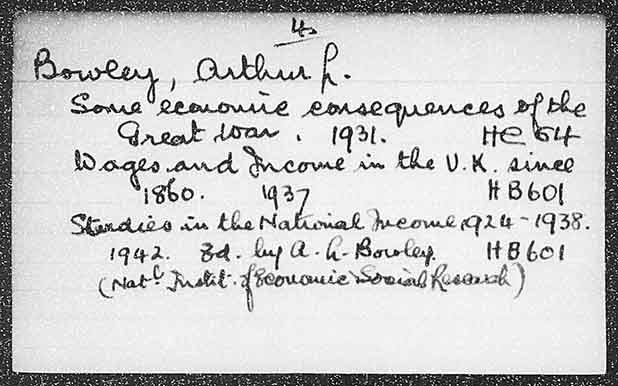 4.
Bowley, Arthur L.
Some economic consequences of the
Great War. 1931. HC 54
Wages and Income in the U.K. since
1860. 1937 HB601
Studies in the National Income, 1924-1938.
1942. Ed. by A. L. Bowley. HB601
(Natl. Instit. of Economic Social Research)